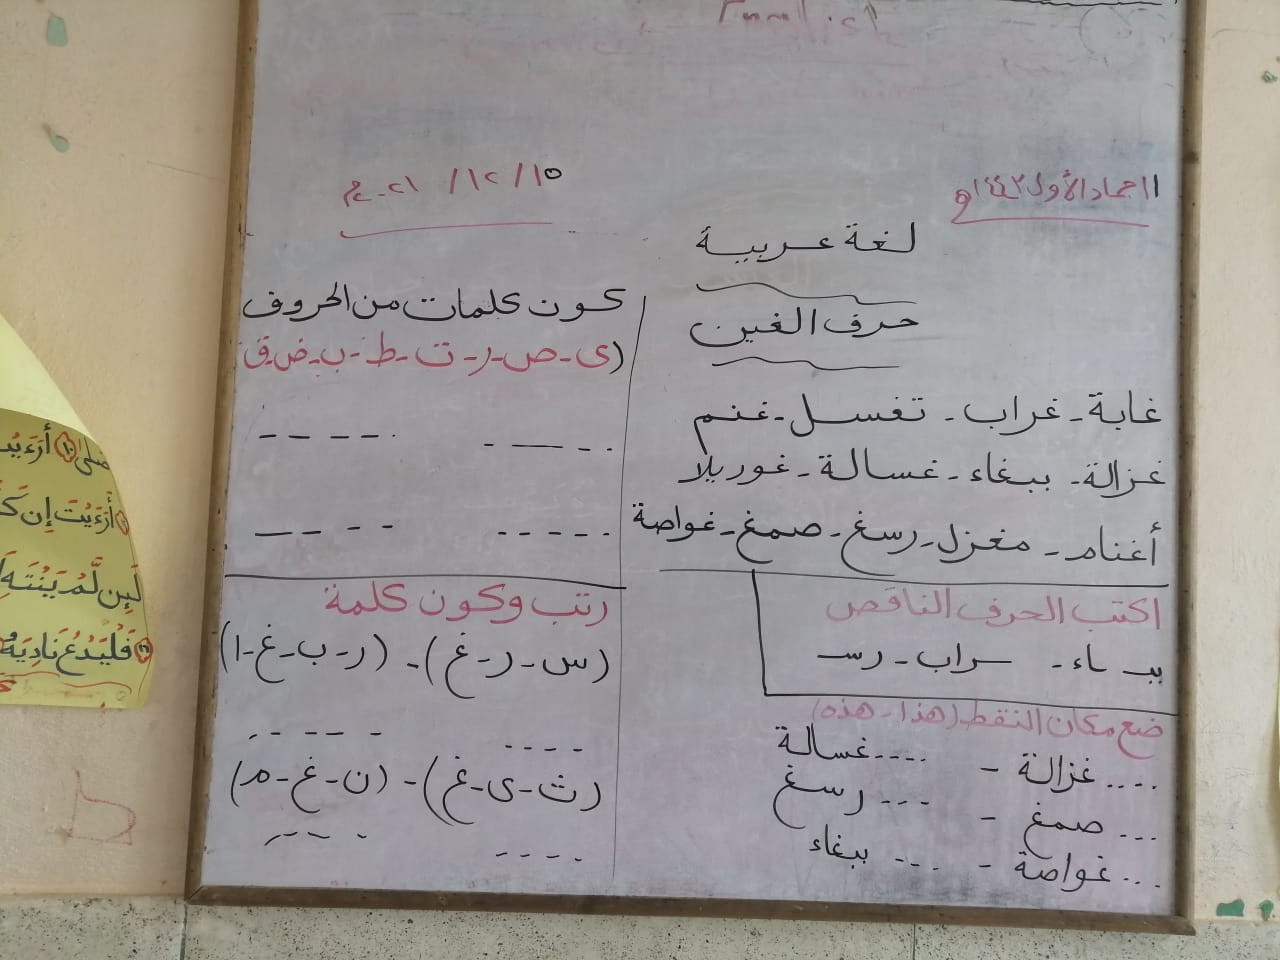 English
١١ جماد الأول ١٤٤٣ه
١٥ / ١٢ / ٢٠٢١م
لغة عربية
حرف الغين
غابة - غراب - تغسل - غنم
غزالة - ببغاء - غسالة - غوريلا
أغنام - مغزل - رسغ - صمغ - غواصة
اكتب الحرف الناقص
ببـ ـاء - ـراب - رسـ
ضع مكان النقط (هذا - هذه)
.... غزالة - .... غسالة
... صمغ - ... رسغ
... غواصة - ... ببغاء
كون كلمات من الحروف
(ى - ص - ر - ت - ط - ب - ض - ق
رتب وكون كلمة
(س - ر - غ) - (ر - ب - غ - ا)
(ث - ى - غ) - (ن - غ - م)
أرءيت إن ك
لئن لم ينته
فليدع ناديه